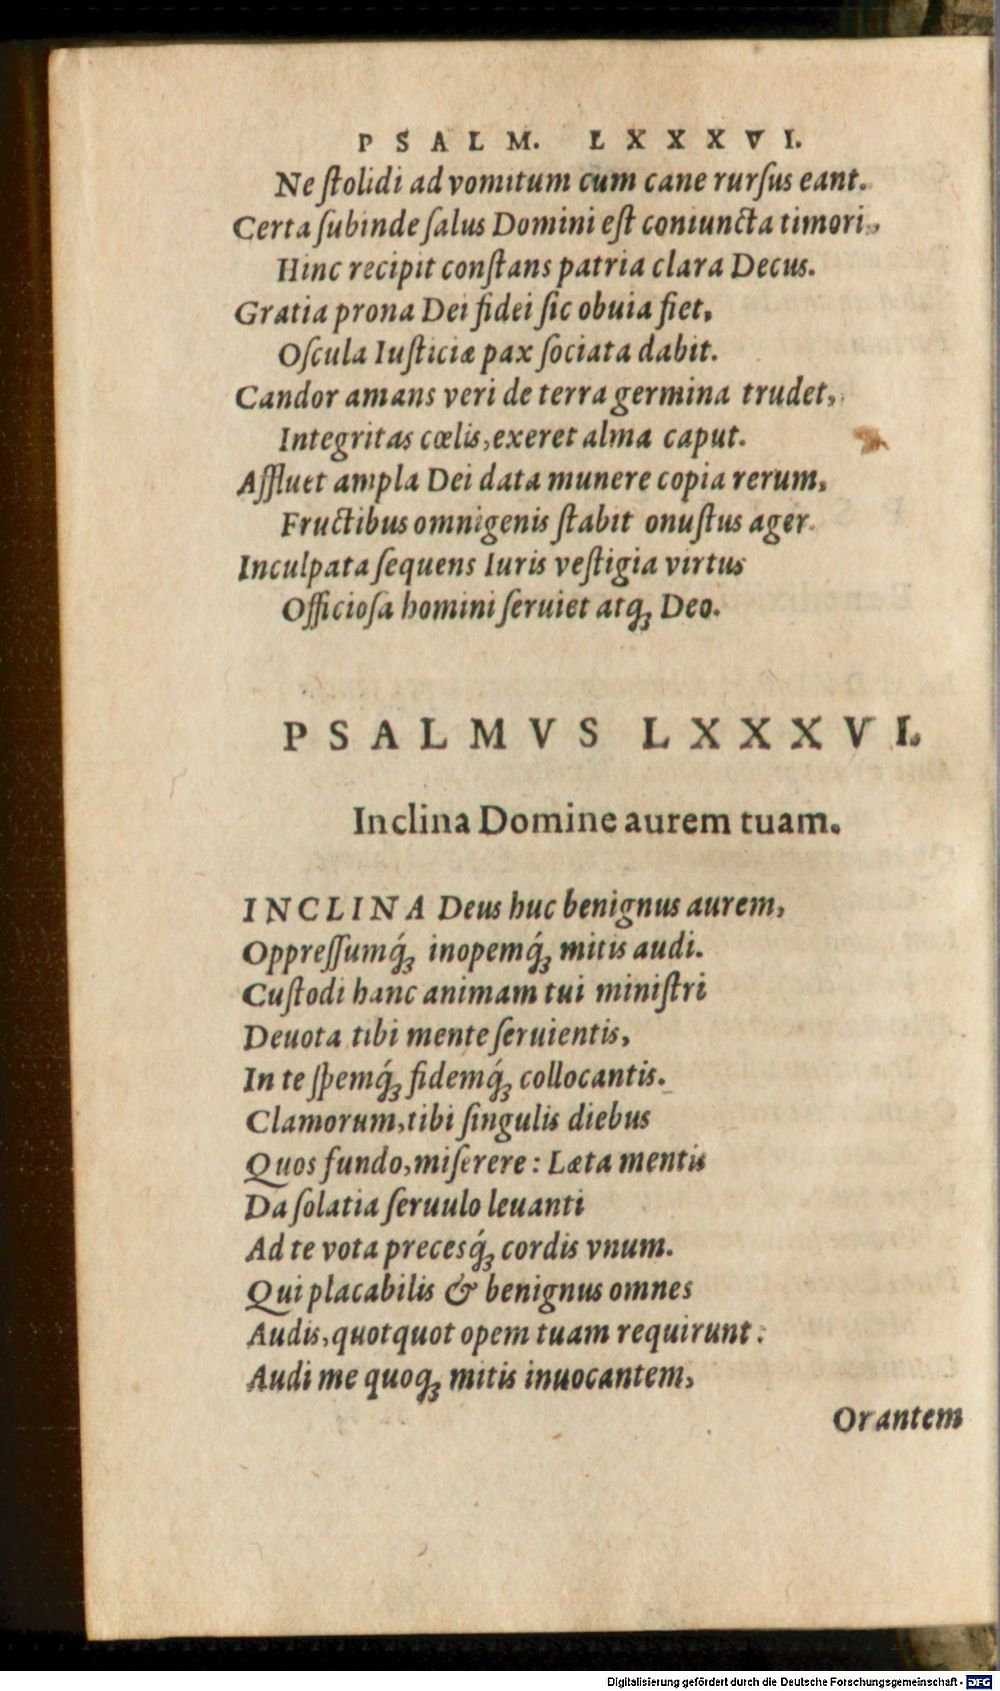 PSALM. LXXXVI.
Ne ſtolidi ad vomitum cum cane rurſus eant.
Certa ſubinde ſalus Domini eſt coniuncta timori,
Hinc recipit conſtans patria clara Decus.
Gratia prona Dei fidei ſic obuia fiet,
Oſcula Iuſticiæ pax ſociata dabit.
Candor amans veri de terra germina trudet,
Integritas cœlis, exeret alma caput.
Affluet ampla Dei data munere copia rerum,
Fructibus omnigenis ſtabit onuſtus ager.
Inculpata ſequens Iuris veſtigia virtus
Officioſa homini ſeruiet atq́; Deo.
PSALMVS LXXXVI.
Inclina Domine aurem tuam.
INCLINA Deus huc benignus aurem,
Oppreſſumq́; inopemq́; mitis audi.
Cuſtodi hanc animam tui miniſtri
Deuota tibi mente ſeruientis,
In te ſpemq́; fidemq́; collocantis.
Clamorum, tibi ſingulis diebus
Quos fundo, miſerere: Læta mentis
Da ſolatia ſeruulo leuanti
Ad te vota precesq́; cordis vnum.
Qui placabilis & benignus omnes
Audis, quotquot opem tuam requirunt:
Audi me quoq; mitis inuocantem,
Orantem
Digitalisierung gefördert durch die Deutsche Forschungsgemeinschaft - DFG